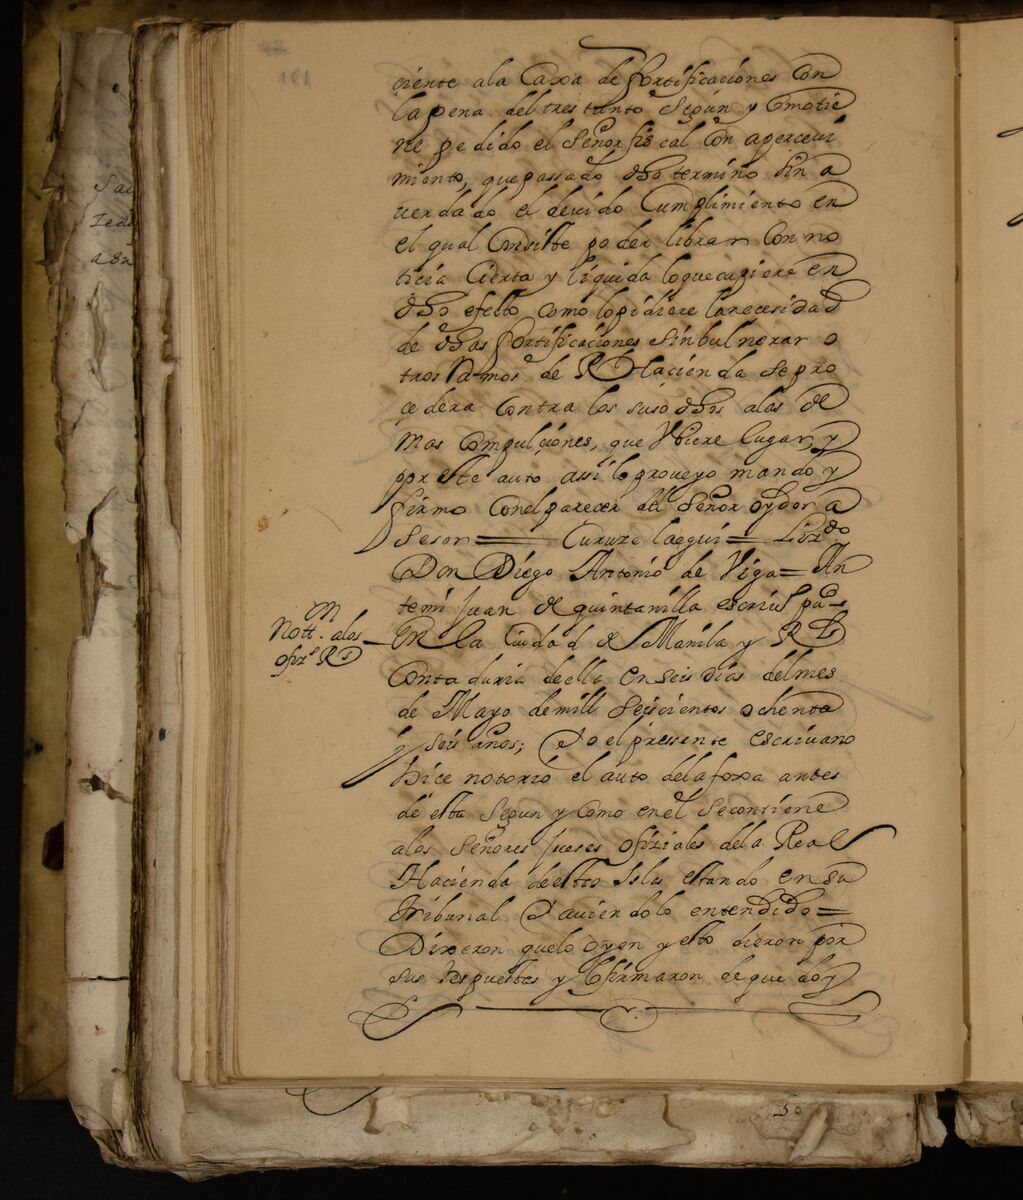 ciente ala Caxa de fortificaciones Con
la pena del tres tanto Segun y Comotie
ne pedido el Señor fiscal Con apercevi
miento, que passado dho termino Sin a
uerdado el devido Cumplimiento en
el qual Consiste poder librar Con no
ticia Cierta y liquida loque cupiere en
dho efecto, como lo pidiere la necesidad
de dhas fortificaciones Sinbulnerar o
tros Ramos de Rl Hacienda Se pro
cedera Contra los suso dhos alas de
mas Compulçiones, que Vbiere lugar, y
por este auto assi lo proveyo mando y
firmo Conelparecer del Señor oydor a
Sesor = Curuze laegui = Lizdo
Don Diego Antonio de Viga = An
temi Juan de quintanilla escriuo puco
En la Ciudad de Manila y Rl
Contaduria de ella en seis dias del mes
de Mayo de mill Seiscientos ochenta
y seis años; Yo el pressente escrivano
hice notorio el auto dela foxa antes
de esta Segun y como en el Secontiene
alos Señores Jueses ofiziales dela Real
Hacienda de estas Islas estando en su
Tribunal Y auiendolo entendido =
Dixeron quelo oyen y esto dieron por
sus respuestas y lo firmaron de que doy
Nott. alos
ofizs Rs